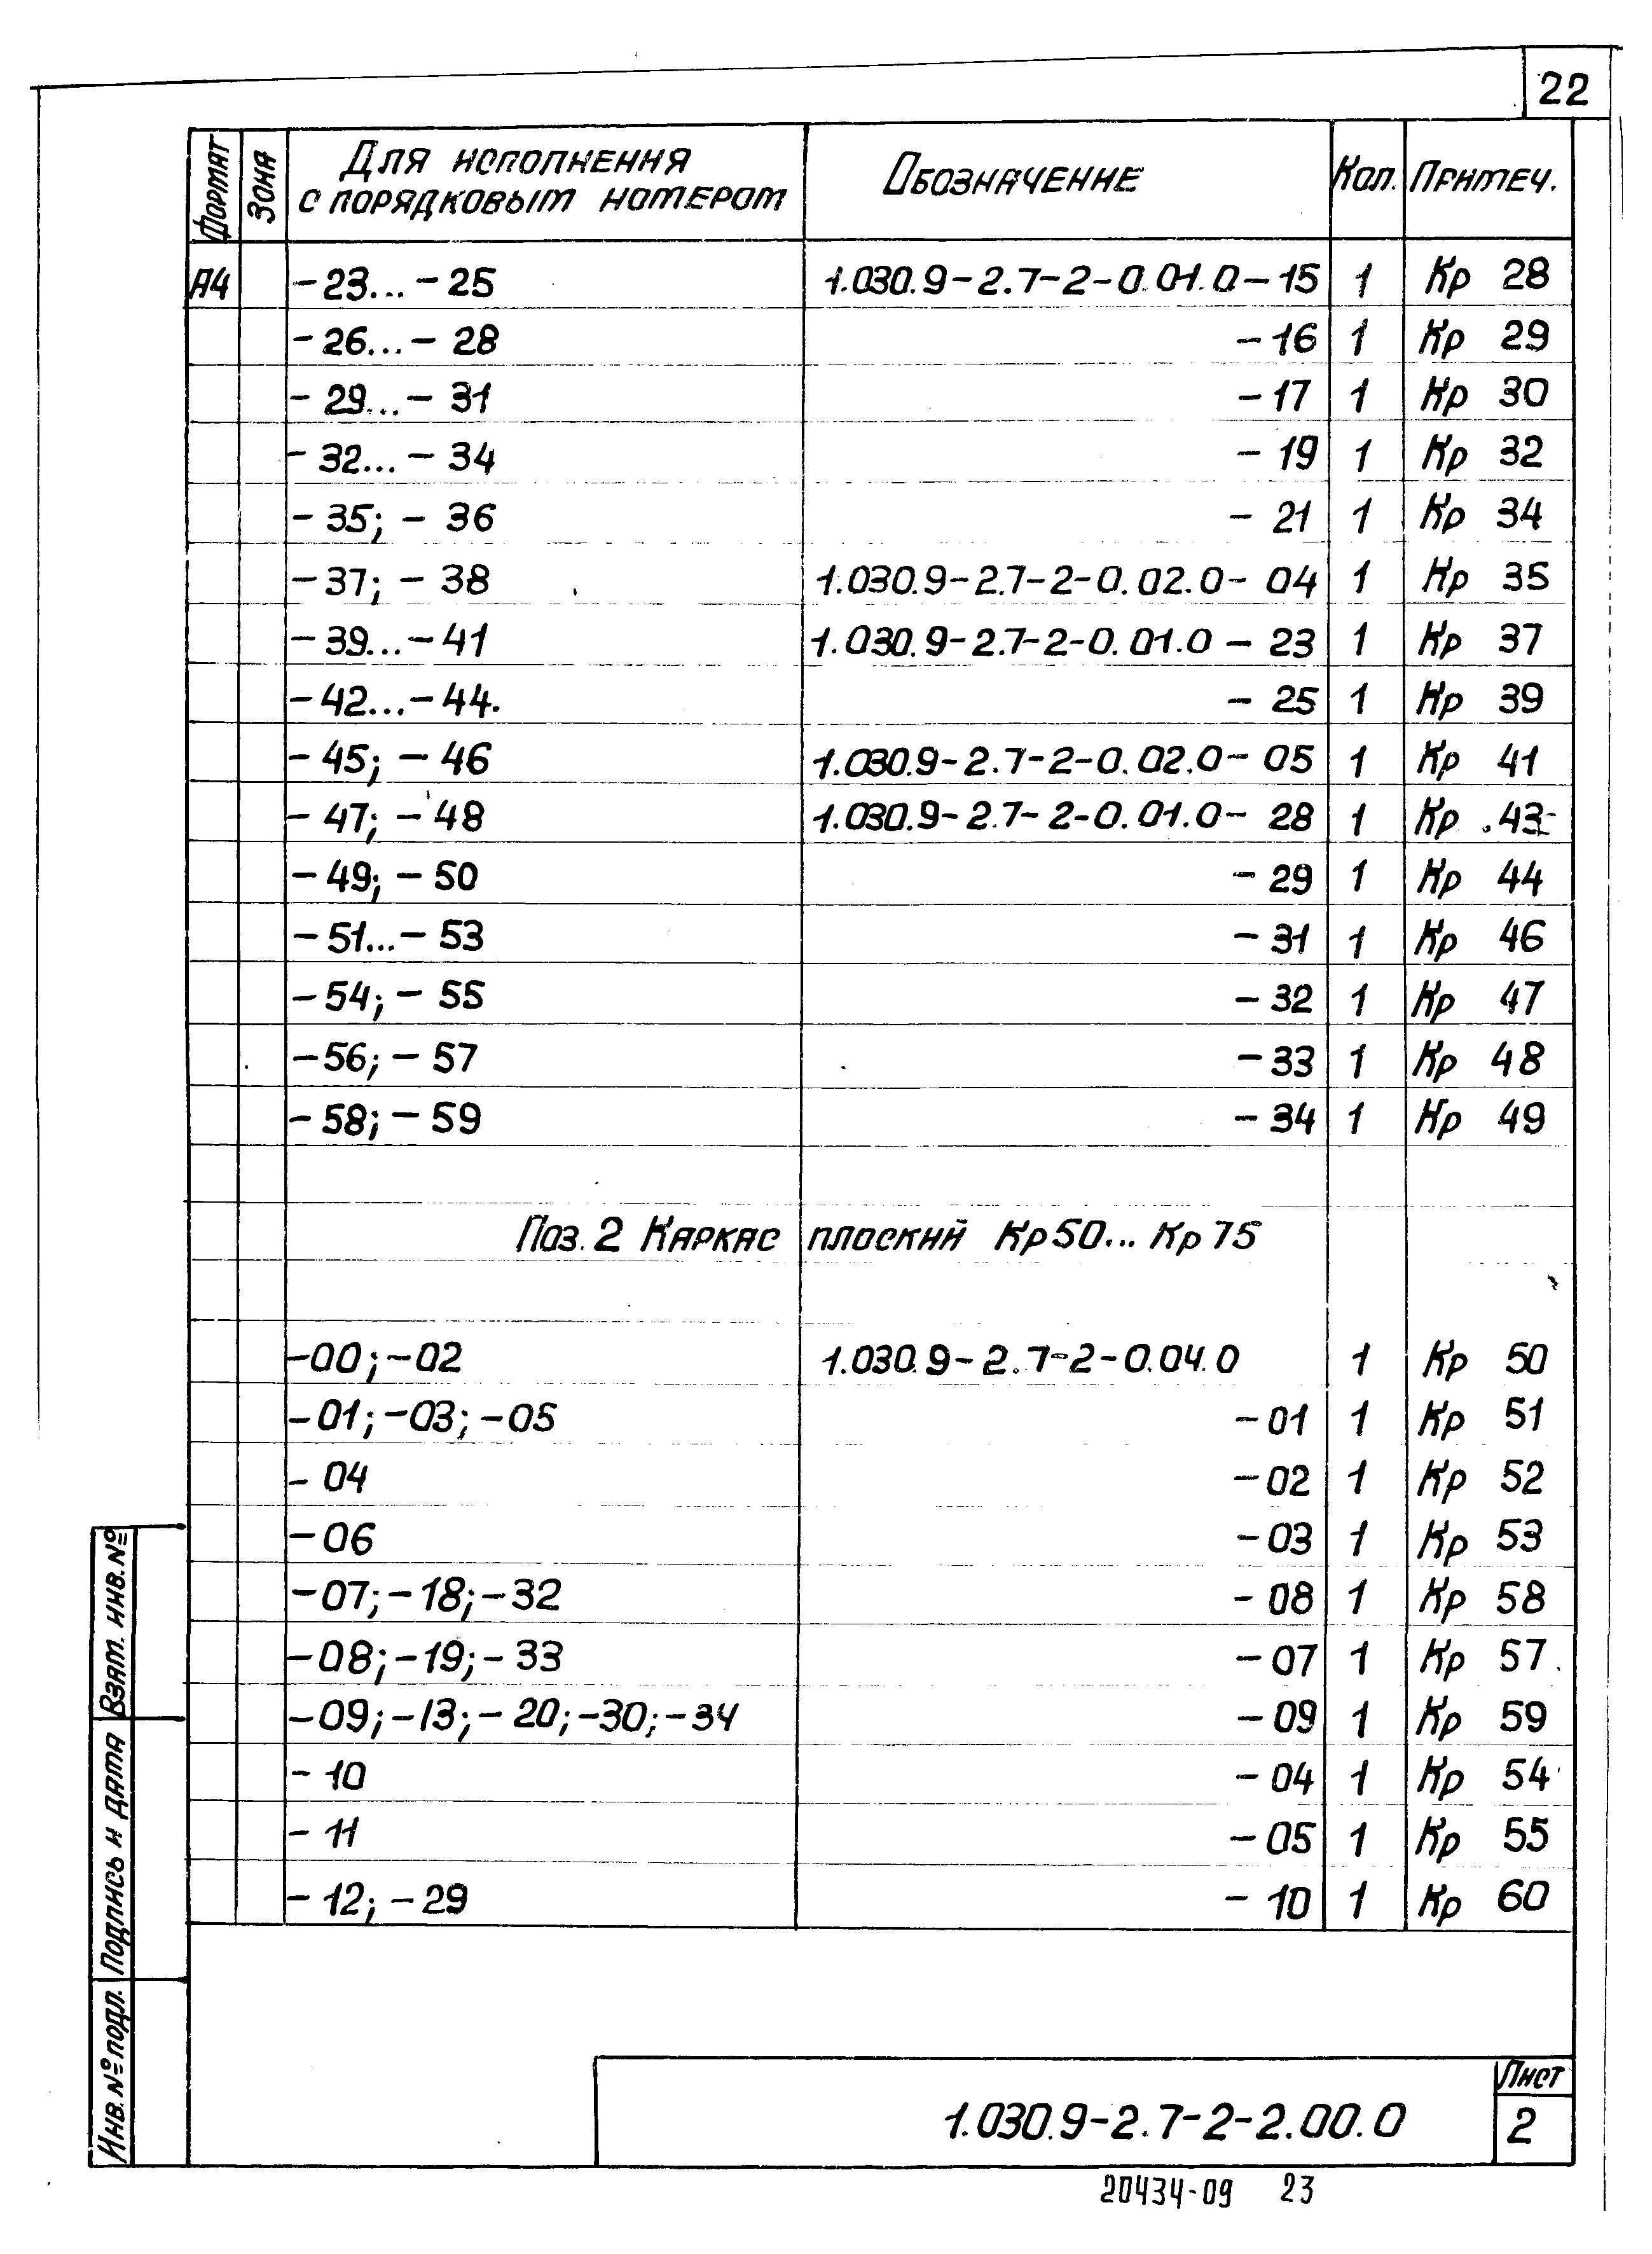 22
Формат Зона Для исполнения с порядковым номером Обозначение Кол. Примеч.
А4 -23...-25 1.030.9-2.7-2-0.01.0-15 1 Кр 28
-26...-28 -16 1 Кр 29
-29...-31 -17 1 Кр 30
-32...-34 -19 1 Кр 32
-35; -36 -21 1 Кр 34
-37; -38 1.030.9-2.7-2-0.02.0-04 1 Кр 35
-39...-41 1.030.9-2.7-2-0.01.0-23 1 Кр 37
-42...-44. -25 1 Кр 39
-45; -46 1.030.9-2.7-2-0.02.0-05 1 Кр 41
-47; -48 1.030.9-2.7-2-0.01.0-28 1 Кр 43
-49; -50 -29 1 Кр 44
-51...-53 -31 1 Кр 46
-54; -55 -32 1 Кр 47
-56; -57 -33 1 Кр 48
-58; -59 -34 1 Кр 49
Поз. 2 Каркас плоский Кр50... Кр75
-00; -02 1.030.9-2.7-2-0.04.0 1 Кр 50
-01; -03; -05 -01 1 Кр 51
-04 -02 1 Кр 52
-06 -03 1 Кр 53
-07; -18; -32 -08 1 Кр 58
-08; -19; -33 -07 1 Кр 57
-09; -13; -20; -30; -34 -09 1 Кр 59
-10 -04 1 Кр 54
-11 -05 1 Кр 55
-12; -29 -10 1 Кр 60
Взам. инв. №
Подпись и дата
Инв. № подл.
1.030.9-2.7-2-2.00.0
Лист
2
20434-09 23